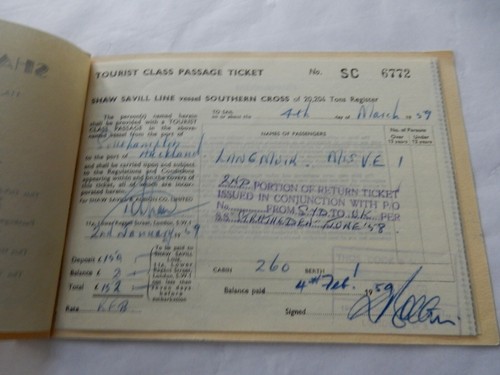 TOURIST CLASS PASSAGE TICKET No. SC 6772
SHAW SAVILL LINE vessel SOUTHERN CROSS of 20,204 Tons Register
TO SAIL on or about the 4th day of March 1959
The person(s) named herein shall be provided with a TOURIST CLASS PASSAGE in the above-named vessel from the port of
Southampton
to the port of Auckland
and shall be carried upon and subject to the Regulations and Conditions appearing within and on the covers of this ticket, all of which are incorporated herein.
FOR SHAW SAVILL & ALBION CO. LIMITED
11a, Lower Regent Street, London, S.W.1
2nd January 59
NAMES OF PASSENGERS
No. of Persons
Over 12 years
Under 12 years
LANGMUIR. MISS V E 1
2ND PORTION OF RETURN TICKET
ISSUED IN CONJUNCTION WITH P.O
No. FROM SYD. TO U.K. PER
S.S.
Deposit £150
Balance £ 2
Total £152
Rate
To be paid to SHAW SAVILL LINE, 11a, Lower Regent Street, London S.W.1 not less than three days before embarkation
CABIN 260 BERTH 1
Balance paid 4th Feb. 1959
Signed